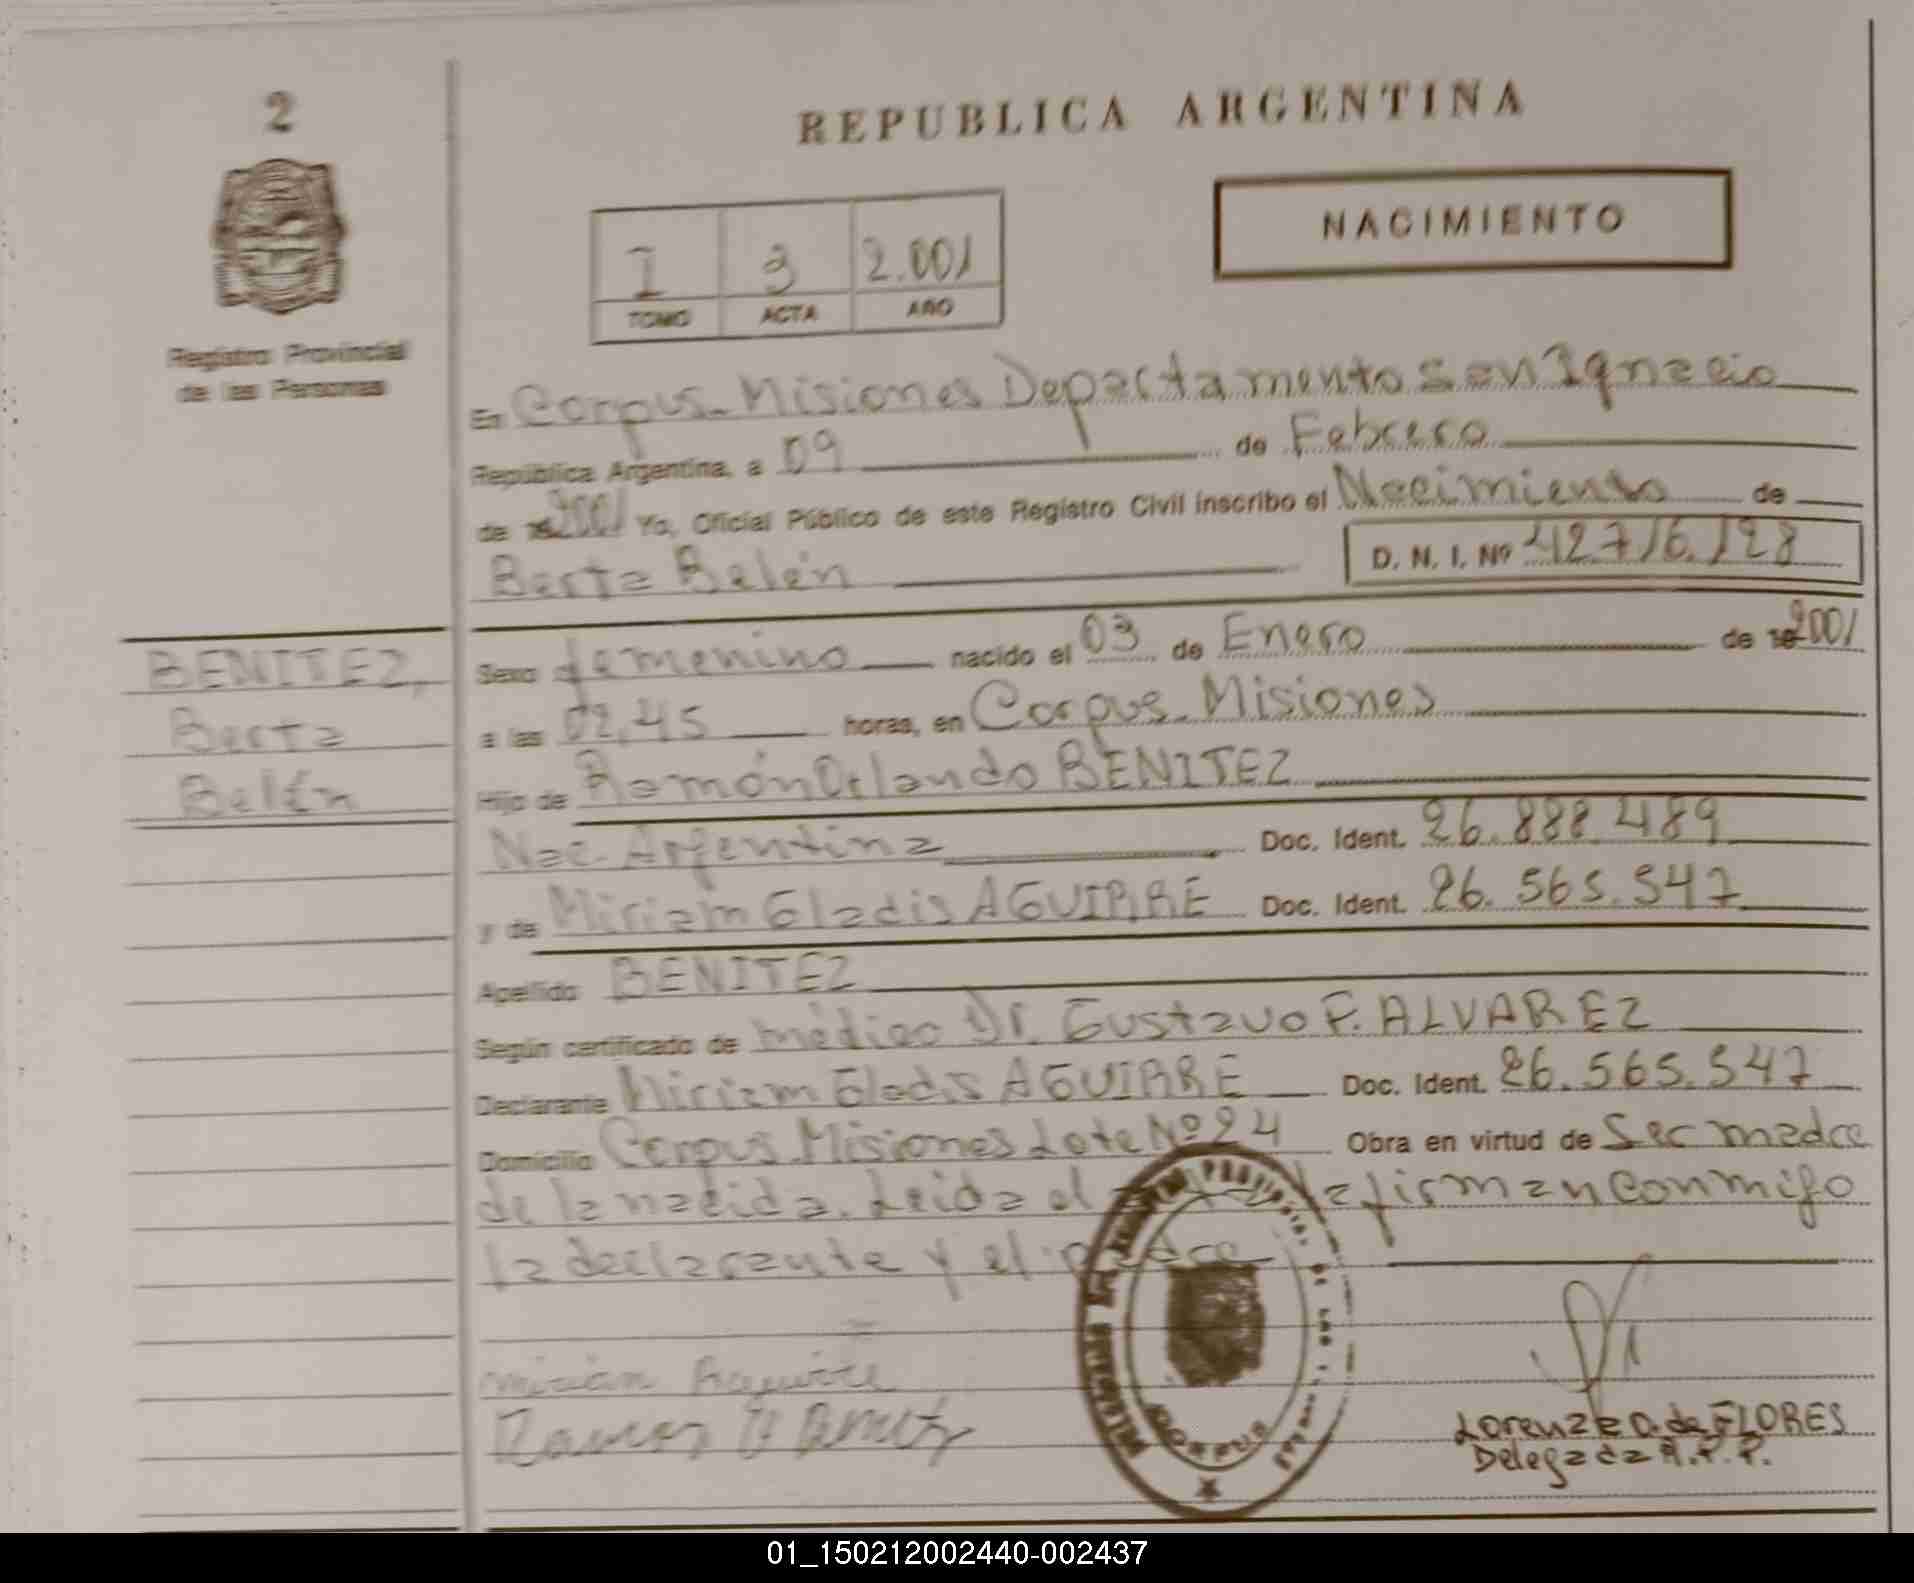 2
REPUBLICA ARGENTINA
NACIMIENTO
I 3 2.001
TOMO ACTA AÑO
Registro Provincial
de las Personas
En Corpus-Misiones Departamento San Ignacio
República Argentina, a 09 de Febrero
de 2001 Yo, Oficial Público de este Registro Civil inscribo el Nacimiento de
Berta Belén D. N. I. Nº 42.716.128
BENITEZ,
Berta
Belén
Sexo femenino nacido el 03 de Enero de 2001
a las 02,45 horas, en Corpus-Misiones
Hijo de Ramón Orlando BENITEZ
Nac. Argentina Doc. Ident. 26.888.489
y de Miriam Gladis AGUIRRE Doc. Ident. 26.565.547
Apellido BENITEZ
Según certificado de médico Dr. Gustavo F. ALVAREZ
Declarante Miriam Gladis AGUIRRE Doc. Ident. 26.565.547
Domicilio Corpus Misiones Lote Nº 24 Obra en virtud de Ser madre
de la nacida. Leida el firman conmigo
la declarante y el padre
Mirian Aguirre
Ramon O Benitez
CORPUS
Lorenza O. de FLORES
Delegada R.P.P.
01_150212002440-002437